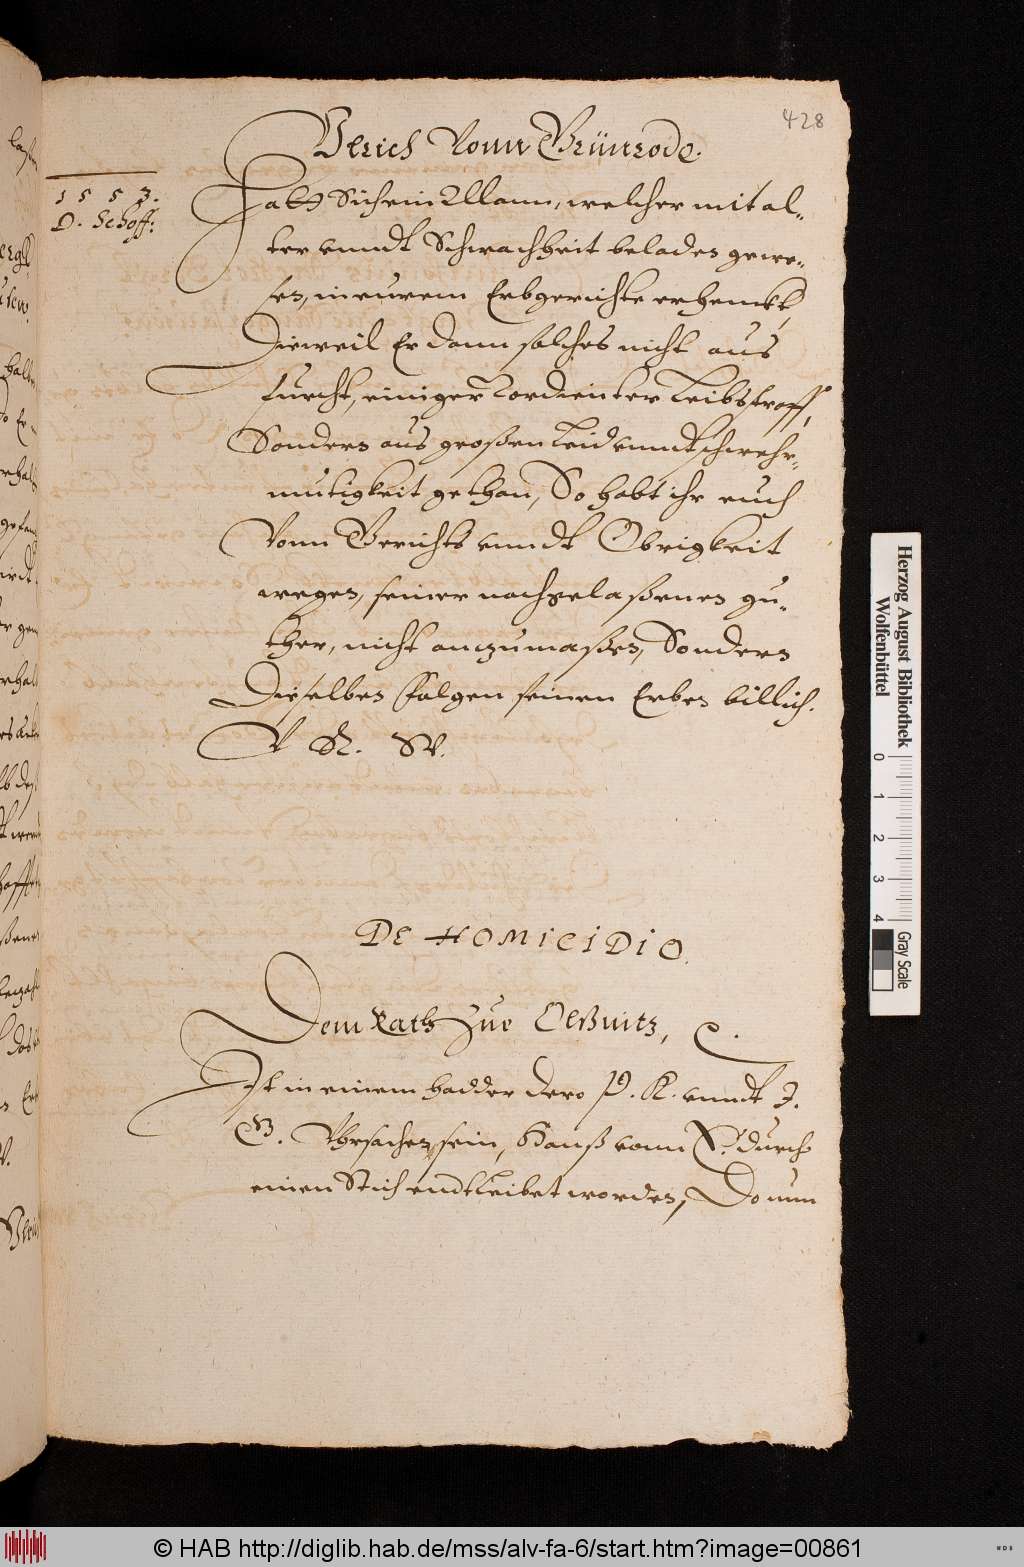 428
Vlrich Vonn Grünrode.
1553.
D. Schoff:
Hatt Sich ein Mann, welcher mit al-
ter vnndt Schwachheit beladen gewe-
sen, in eurem Erbgerichte erhenckt,
Dieweil Er dann solches nicht aus
furcht, einiger Vordienter Leibsstraff,
Sondern aus großen Leid vnndt schwehr-
mutigkeit gethan, So habt ihr euch
Vonn Gerichts vnndt Obrigkeit
wegen, seiner nachgelaßenen gu-
ther, nicht anzumaßen, Sondern
Dieselben folgen seinen Erben billich.
V R. W.
DE HOMICIDIO.
Dem Rath Zue Olßnitz,
Ist in einem hadder dero P. K. vnndt J.
G. Vhrsacher sein, Hanß vonn S. durch
einen Stich endtleibet worden, Do nun
Herzog August Bibliothek
Wolfenbüttel
0 1 2 3 4
Gray Scale
© HAB http://diglib.hab.de/mss/alv-fa-6/start.htm?image=00861